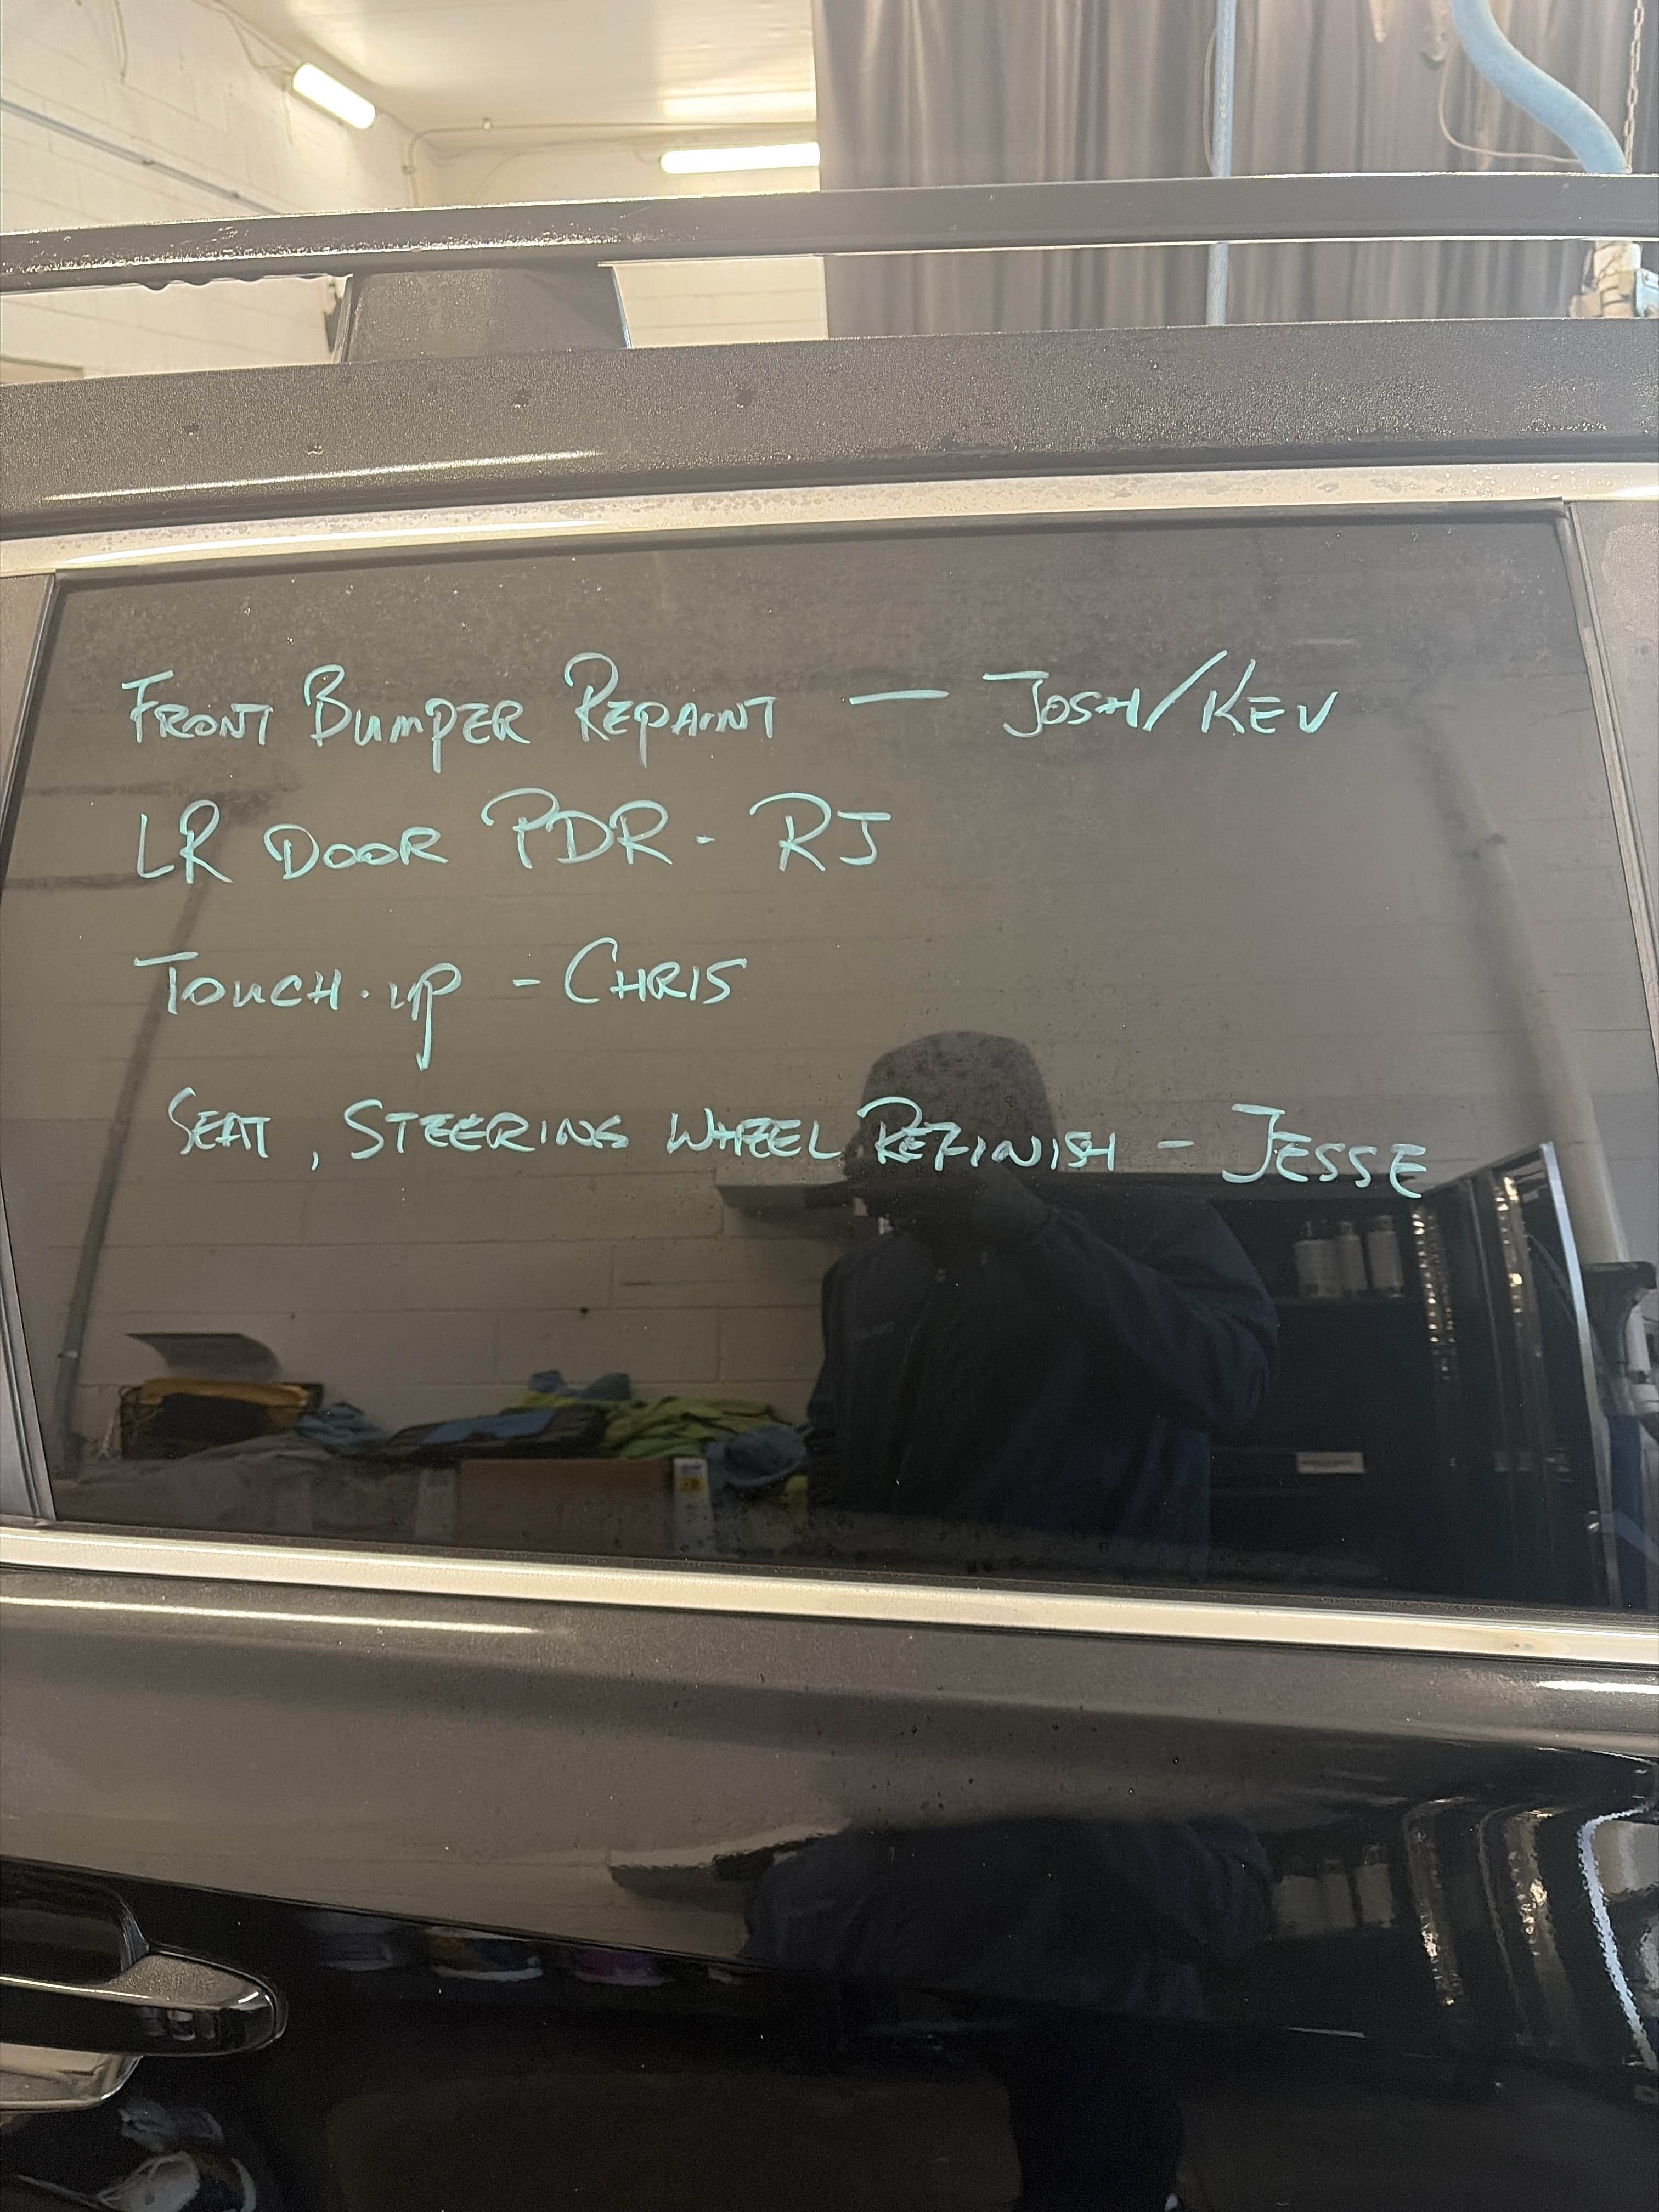 FRONT BUMPER REPAINT — JOSH/KEV
LR DOOR PDR - RJ
TOUCH-UP - CHRIS
SEAT, STEERING WHEEL REFINISH - JESSE